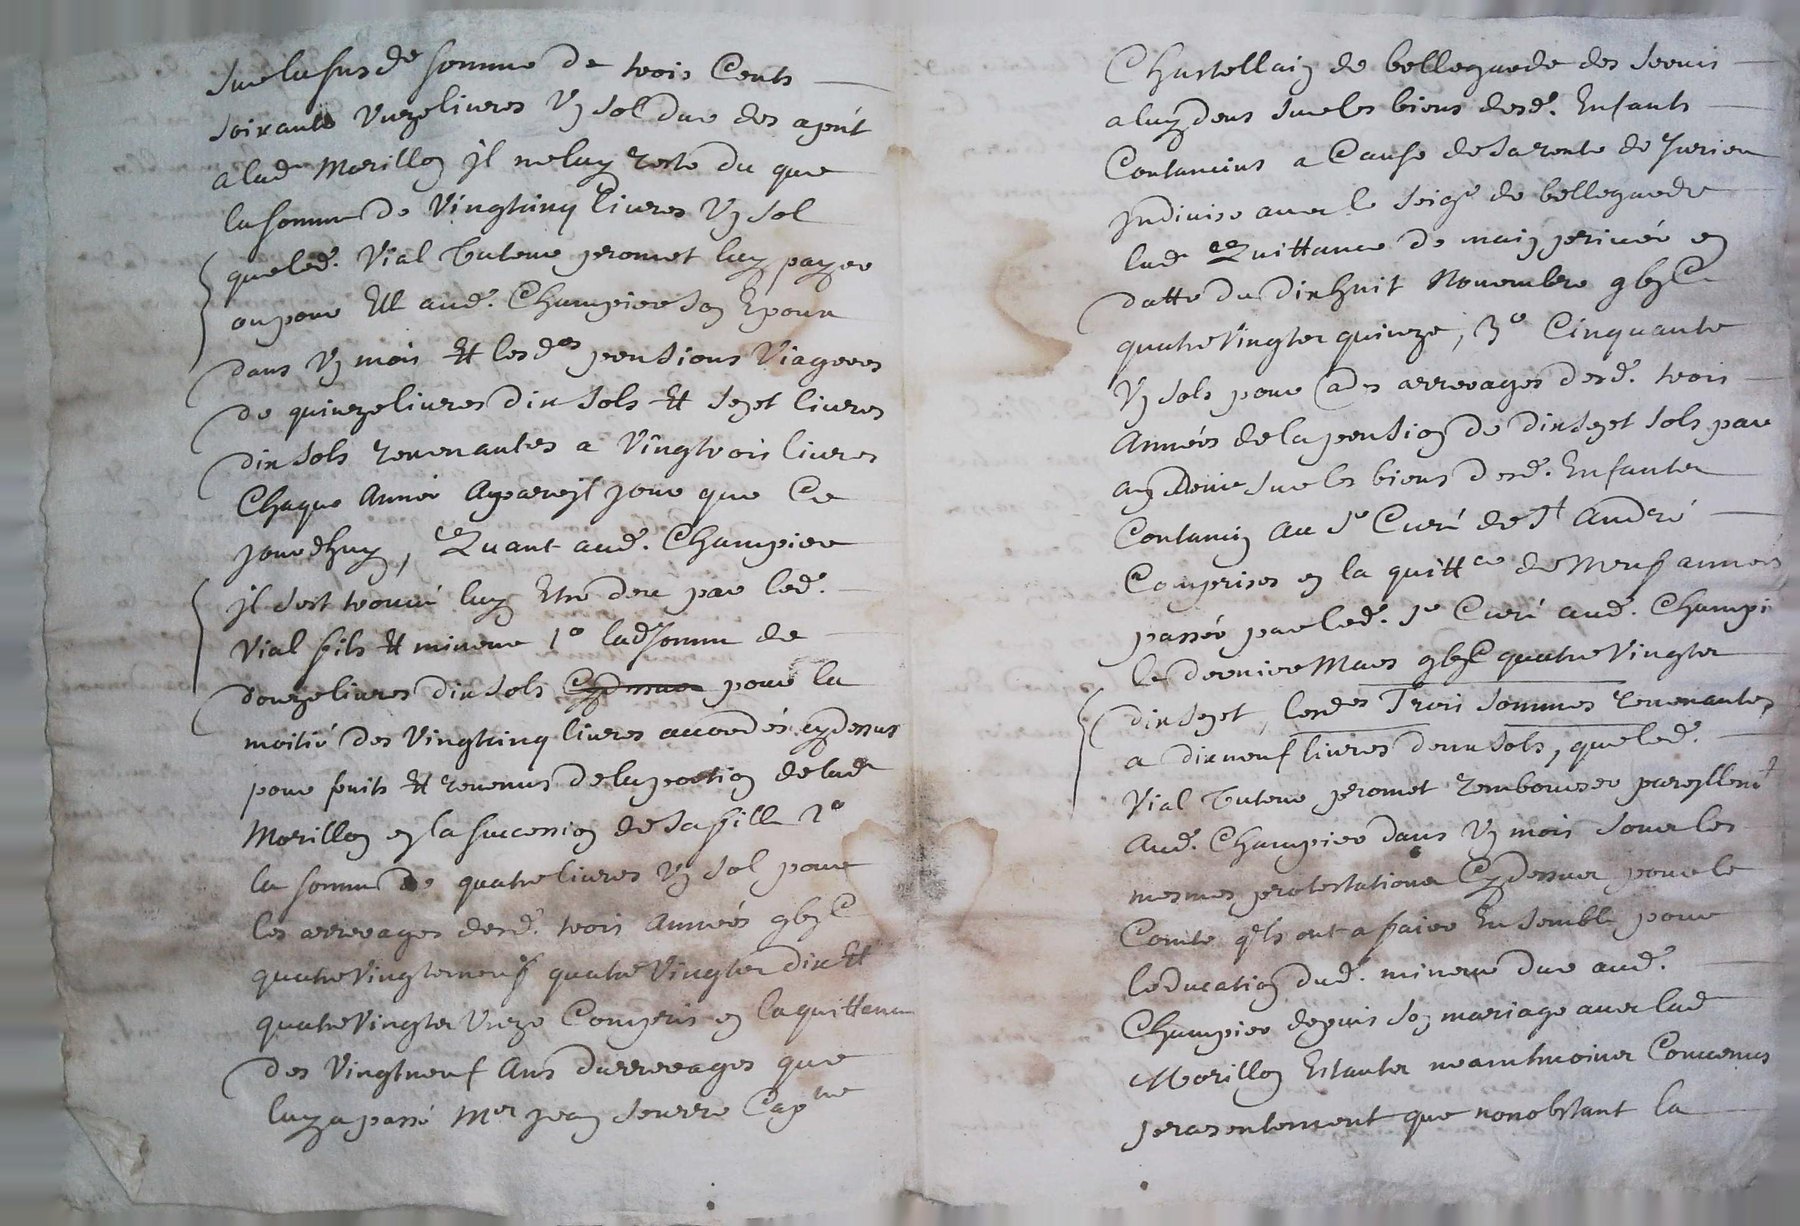 sur la susd.e somme de trois Cents
soixante Unze livres Un sol due des apnt
a lad. Morillon Il ne luy reste du que
la somme de Vingtcinq livres Un sol
que led. Vial tuteur promet luy payer
ou pour Elle aud. Champier son Epoux
dans Un mois Et lesd.es pensions Viageres
de quinze livres dix sols Et sept livres
dix sols revenantes a Vingtrois livres
Chaque Année a pareil jour que Ce
jourdhuy, Quant aud. Champier
Il sest trouvé luy Etre deu par led.
Vial fils Et mineur 1o lad. somme de
douze livres dix sols pour la
moitié des Vingtcinq livres accordés cydessus
pour fruits Et revenus de la portion de lad.
Morillon en la succession de sa fille 2o
la somme de quatre livres Un sol pour
les arrerages desd. trois Années gbjC
quatre Vingtz neuf quatre Vingtz dix Et
quatre Vingtz Unze Compris en la quittance
des Vingtneuf Ans darrerages que
luy a passé Mer Jean Cap.ne
Chastellain de bellegarde des servis
a luy deus sur les biens desd. Enfants
Contamins a Cause de sa rente de Jurieu
Indivise avec le seigr de bellegarde
lad. Quittance de main privée en
datte du dix huit Novembre gbjC
quatre Vingtz quinze, 3o Cinquante
Un sols pour les arrerages desd. trois
Années de la pension de dix sept sols par
an deue sur les biens desd. Enfants
Contamin au Sr Curé de St André
Comprises en la quittce de Neuf années
passée par led. Sr Curé aud. Champi
le dernier Mars gbjC quatre Vingtz
dix sept, lesd.es Trois sommes revenantes
a dix neuf livres deux sols, que led.
Vial tuteur promet rembourser pareillemt
Aud. Champier dans Un mois sous les
mesmes protestations Cydessus pour le
Comte qils ont a faire Ensemble pour
leducation dud. mineur due aud.
Champier depuis son mariage avec lad.
Morillon Estants neantmoins Convenus
presentement que nonobstant la